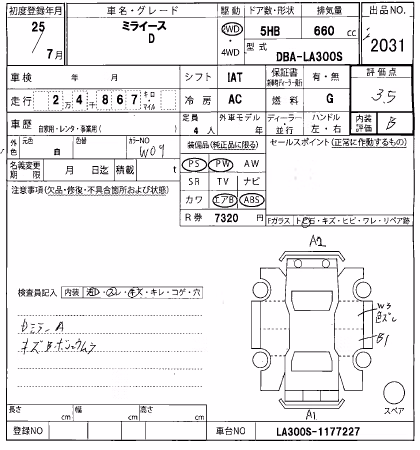 初度登録年月 車名・グレード 駆動 ドア数・形状 排気量 出品NO.
25 ミライース 2WD 5HB 660 cc
7月 D ・4WD 型式 DBA-LA300S 2031
車検 年 月 シフト IAT 保証書 有・無 評価点
走行 2万4千867 キロ・マイル 冷房 AC 燃料 G 3.5
車歴 自家用・レンタ・事業用( ) 定員 4人 外車モデル 年 ディーラー・並行 ハンドル 左・右 内装評価 B
外色 元色 白 カラーNO W09 装備品(純正品に限る) セールスポイント(正常に作動するもの)
名義変更期限 月 日迄 積載 t PS PW AW
注意事項(欠品・修復・不具合箇所および状態) SR TV ナビ
カワ エアB ABS
R券 7320 円 Fガラス トビ石・キズ・ヒビ・ワレ・リペア跡
A2
検査員記入 内装 ・スレ・キズ・キレ・コゲ・穴
W3
A
B1
スペア
A1
長さ cm 幅 cm 高さ cm
登録NO 車台NO LA300S-1177227